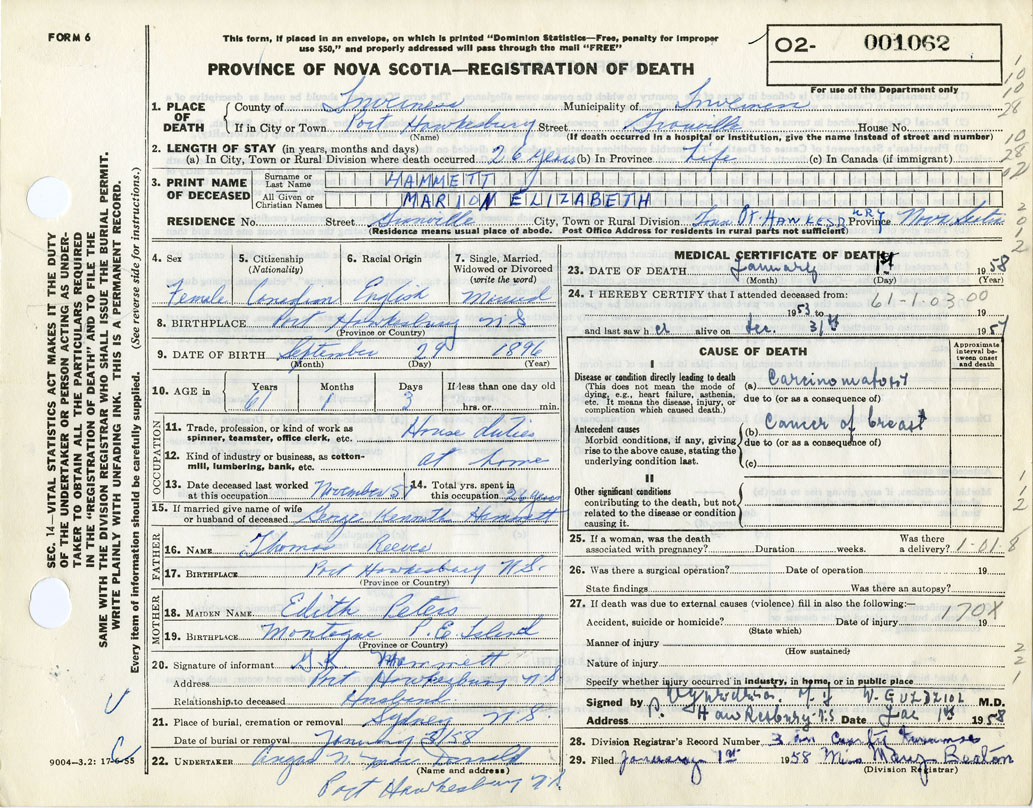 FORM 6
This form, if placed in an envelope, on which is printed "Dominion Statistics—Free, penalty for improper
use $50," and properly addressed will pass through the mail "FREE"
02- 001062
For use of the Department only
PROVINCE OF NOVA SCOTIA—REGISTRATION OF DEATH
1. PLACE OF DEATH County of Inverness Municipality of Inverness
If in City or Town Port Hawkesbury Street Granville House No.
(Name) (If death occurred in a hospital or institution, give the name instead of street and number)
2. LENGTH OF STAY (in years, months and days)
(a) In City, Town or Rural Division where death occurred 26 years (b) In Province Life (c) In Canada (if immigrant)
3. PRINT NAME OF DECEASED Surname or Last Name HAMMETT
All Given or Christian Names MARION ELIZABETH
RESIDENCE No. Street Granville City, Town or Rural Division Town Pt. HAWKESBURY Province Nova Scotia
(Residence means usual place of abode. Post Office Address for residents in rural parts not sufficient)
4. Sex Female
5. Citizenship (Nationality) Canadian
6. Racial Origin English
7. Single, Married, Widowed or Divorced (write the word) Married
8. BIRTHPLACE Port Hawkesbury N S
(Province or Country)
9. DATE OF BIRTH September 29 1896
(Month) (Day) (Year)
10. AGE in Years 61 Months 1 Days 3 If less than one day old hrs. or min.
OCCUPATION
11. Trade, profession, or kind of work as spinner, teamster, office clerk, etc. House duties
12. Kind of industry or business, as cotton-mill, lumbering, bank, etc. at home
13. Date deceased last worked at this occupation November 57
14. Total yrs. spent in this occupation 26 years
15. If married give name of wife or husband of deceased George Kenneth Hammett
FATHER
16. NAME Thomas Reeves
17. BIRTHPLACE Port Hawkesbury N.S.
(Province or Country)
MOTHER
18. MAIDEN NAME Edith Peters
19. BIRTHPLACE Montague P. E. Island
(Province or Country)
20. Signature of informant G. K Hammett
Address Port Hawkesbury N S
Relationship to deceased Husband
21. Place of burial, cremation or removal Sydney N. S.
Date of burial or removal January 3/58
22. UNDERTAKER Angus N.
(Name and address)
Port Hawkesbury N.S.
MEDICAL CERTIFICATE OF DEATH
23. DATE OF DEATH January 1st 1958
(Month) (Day) (Year)
24. I HEREBY CERTIFY that I attended deceased from: 61-1-03 00
1953 to 19
and last saw her alive on Dec. 31st 1957
CAUSE OF DEATH
Approximate interval between onset and death
I
Disease or condition directly leading to death
(This does not mean the mode of dying, e.g., heart failure, asthenia, etc. It means the disease, injury, or complication which caused death.)
(a) Carcinomatosis
due to (or as a consequence of)
Antecedent causes
Morbid conditions, if any, giving rise to the above cause, stating the underlying condition last.
(b) Cancer of breast
due to (or as a consequence of)
(c)
II
Other significant conditions
contributing to the death, but not related to the disease or condition causing it.
25. If a woman, was the death associated with pregnancy? Duration weeks. Was there a delivery? 1-01-8
26. Was there a surgical operation? Date of operation 19
State findings Was there an autopsy?
27. If death was due to external causes (violence) fill in also the following:—
Accident, suicide or homicide? Date of injury 19
170X
(State which)
Manner of injury
(How sustained)
Nature of injury
Specify whether injury occurred in industry, in home, or in public place
Signed by M.D.
Address P. Hawkesbury N S Date Jan 1st 1958
28. Division Registrar's Record Number 3
29. Filed January 1st 1958 Mrs Mary Beaton
(Division Registrar)
SEC. 14—VITAL STATISTICS ACT MAKES IT THE DUTY
OF THE UNDERTAKER OR PERSON ACTING AS UNDER-
TAKER TO OBTAIN ALL THE PARTICULARS REQUIRED
IN THE "REGISTRATION OF DEATH" AND TO FILE THE
SAME WITH THE DIVISION REGISTRAR WHO SHALL ISSUE THE BURIAL PERMIT.
WRITE PLAINLY WITH UNFADING INK. THIS IS A PERMANENT RECORD.
Every item of information should be carefully supplied. (See reverse side for instructions.)
9004—3.2: 17-6-55